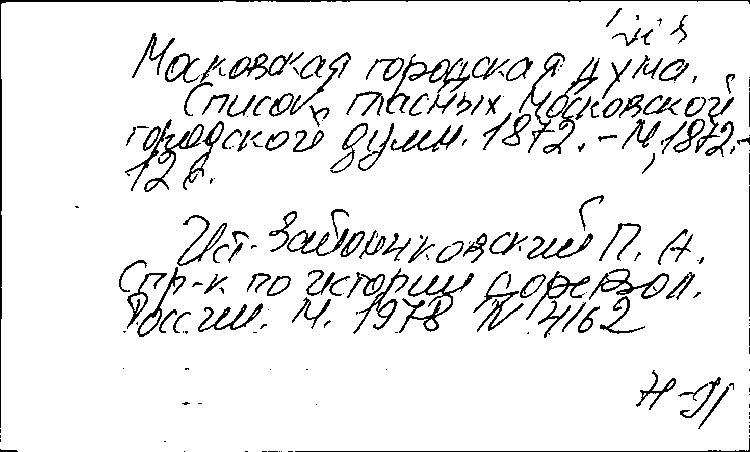 Московская городская дума.
Список гласных Московской
городской думы. 1872. – М, 1872. –
12 с.
Ист. Зайончковский П. А.
Спр-к по истории дореввол.
России. М. 1978 N 4162
Н-91